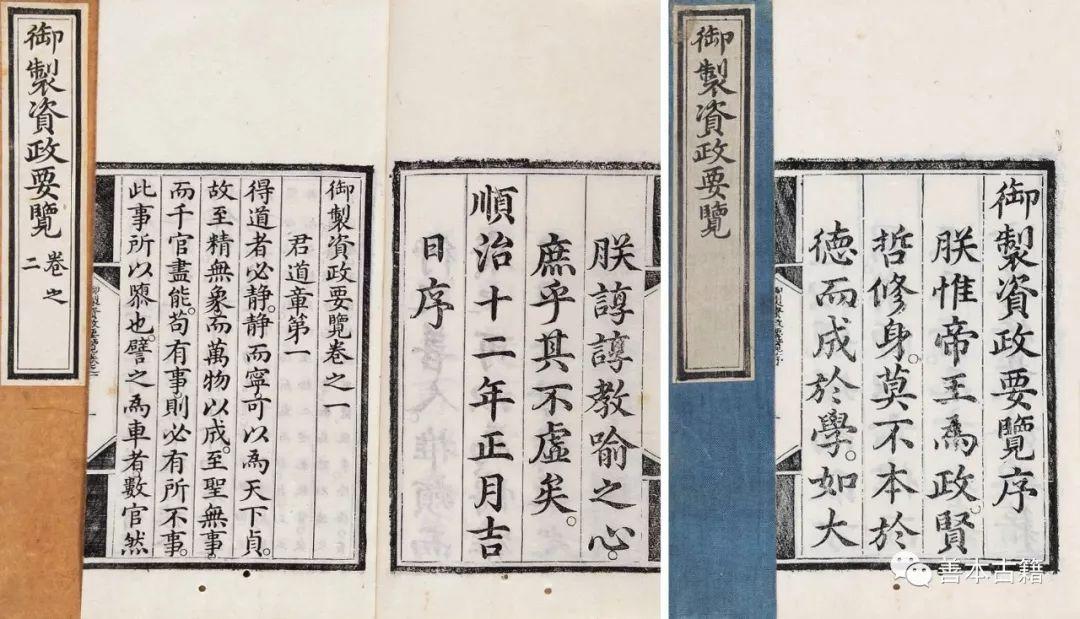 御製資政要覽序
朕惟帝王為政。賢
哲修身。莫不本於
德而成於學。如大
御製資政要覽
朕諄諄教喻之心。
庶乎其不虛矣。
順治十二年正月吉
日序
御製資政要覽卷之一
君道章第一
得道者必靜。靜而寧。可以為天下貞。
故至精無象。而萬物以成。至聖無事。
而千官盡能。苟有事。則必有所不事。
此事所以隳也。譬之為車者。數官然
御製資政要覽 卷之
二
善本古籍